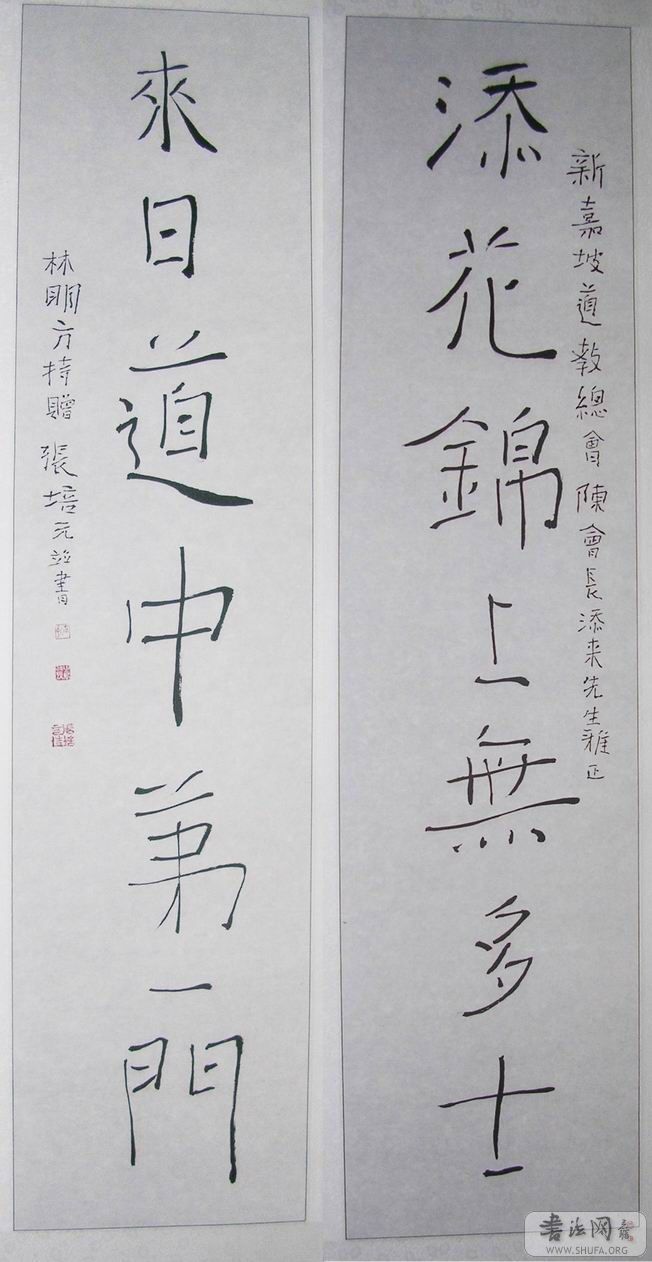 新嘉坡道教總會陳會長添来先生雅正
添花錦上無多士
來日道中第一門
林明方持贈 張培元並書
書法网
WWW.SHUFA.ORG